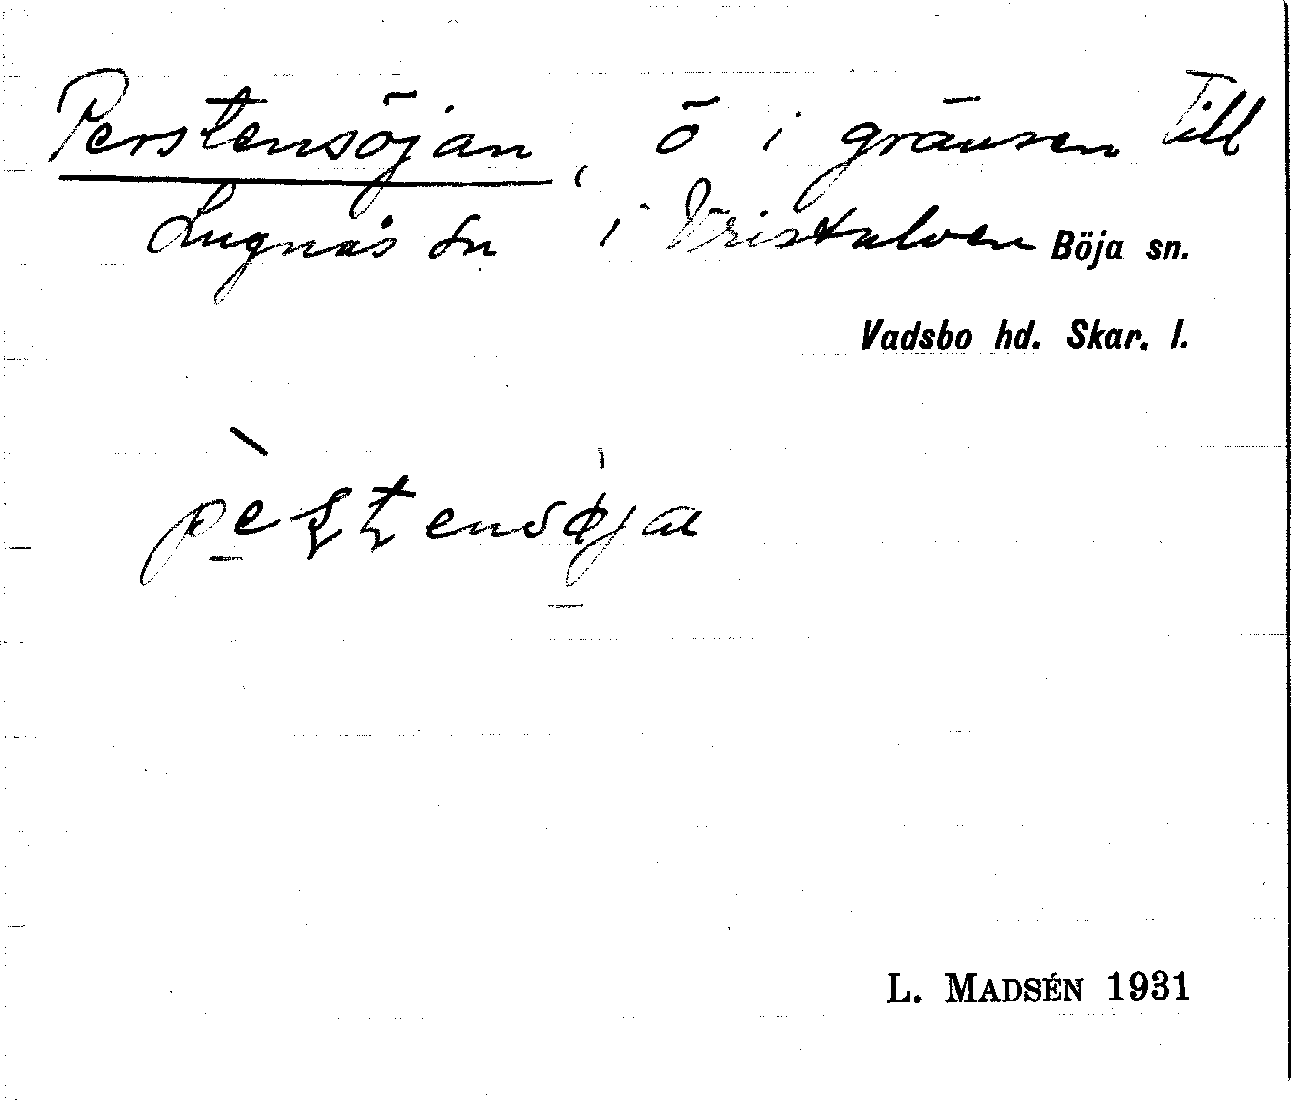 Perstensöjan, ö i gränsen till
Lugnås sn i Kristalven Böja sn.
Vadsbo hd. Skar. l.
L. MADSÉN 1931